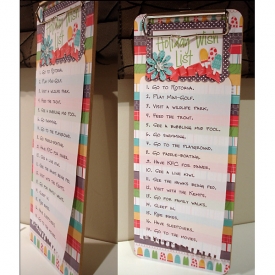 Holiday Wish
List
1. Go to Rotorua.
2. Play Mini-Golf.
3. Visit a wildlife park.
4. Feed the trout.
5. See a bubbling mud pool.
6. Go swimming.
7. Go to the playground.
8. Go paddle-boating.
9. Have KFC for dinner.
10. See a live kiwi.
11. See the hawks being fed.
12. Visit with the
13. Go for family walks.
14. Sleep in.
15. Ride bikes.
16. Have sleepovers.
17. Go to the movies.